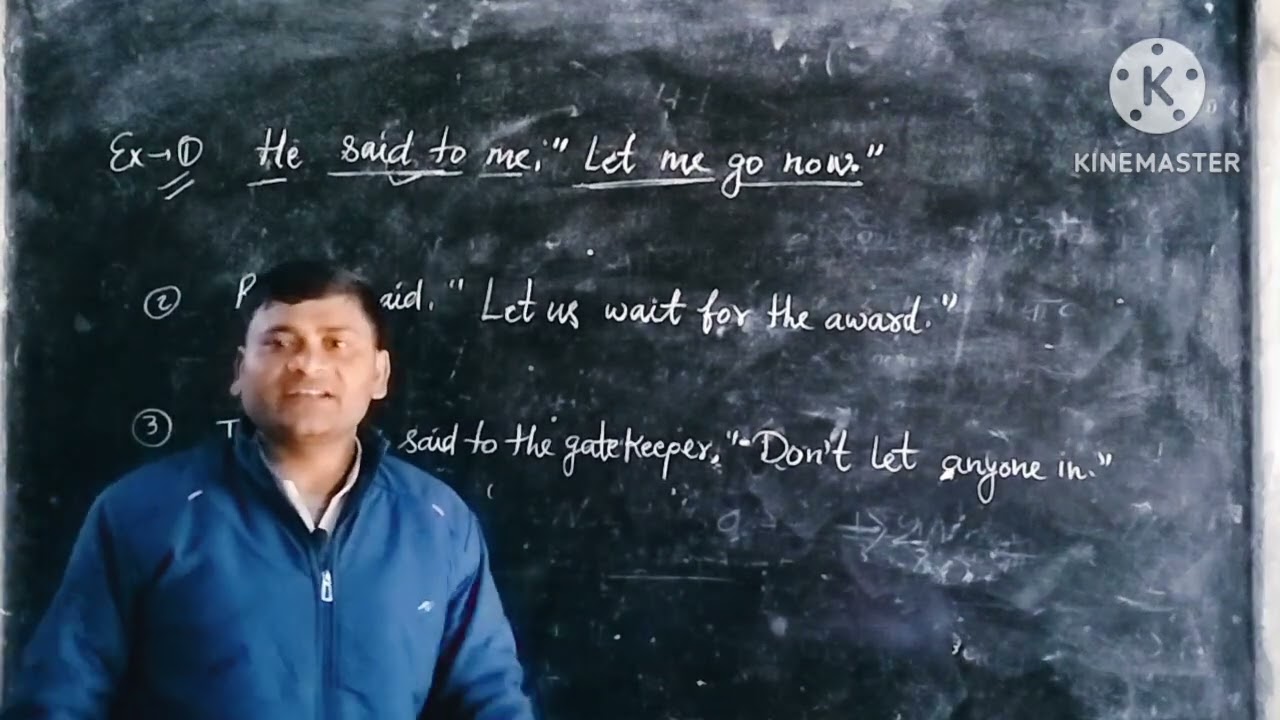 KINEMASTER
Ex→① He said to me, "Let me go now."
② aid, "Let us wait for the award."
③ T said to the gatekeeper, "Don't let anyone in."